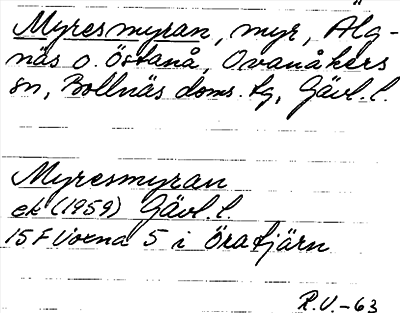 Myresmyran, myr, Älg-
näs o. Östanå, Ovanåkers
sn, Bollnäs doms. tg, Gävl. l.
Myresmyran
ek (1959) Gävl. l.
15F Voxna 5 i Öratjärn
R.V.-63